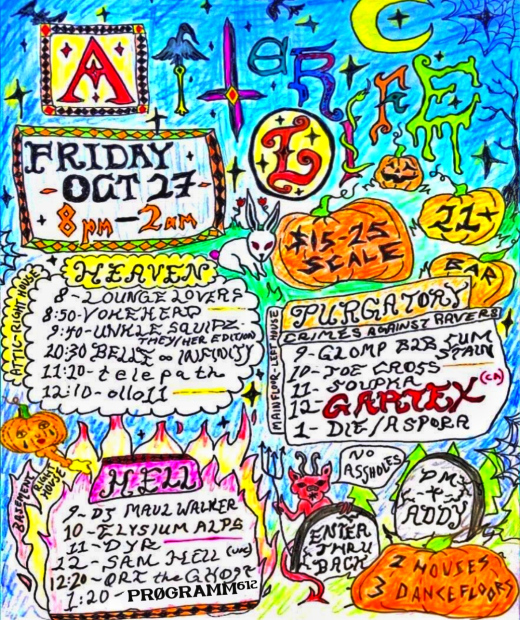 AFTER LIFE
FRIDAY
OCT 27
8pm-2am
$15-25
SCALE
21+
BAR
ATTIC-RIGHT HOUSE
HEAVEN
8-LOUNGE LOVERS
8:50-YOKEHEAD
9:40-UNKLE SQUIPZ
THEY/HER EDITION
20:30 BELLE ∞ INFINITY
11:10-telepath
12:10-ollo11
MAIN FLOOR-LEFT HOUSE
PURGATORY
CRIMES AGAINST RAVERS
9-GLOMP B2B CUM
STAIN
10-JOE CROSS
11-SOUPKA
12-GARTEX (CA)
1-DIE/ASPORA
BASEMENT
RIGHT HOUSE
HELL
9-DJ MAUL WALKER
10-ELYSIUM ALPS
11-DYR
12-SAN HELL (LIVE)
12:20-ORI the GHOST
1:20-PRØGRAMM612
NO
ASSHOLES
ENTER
THRU
BACK
DM
4
ADDY
2 HOUSES
3 DANCEFLOORS